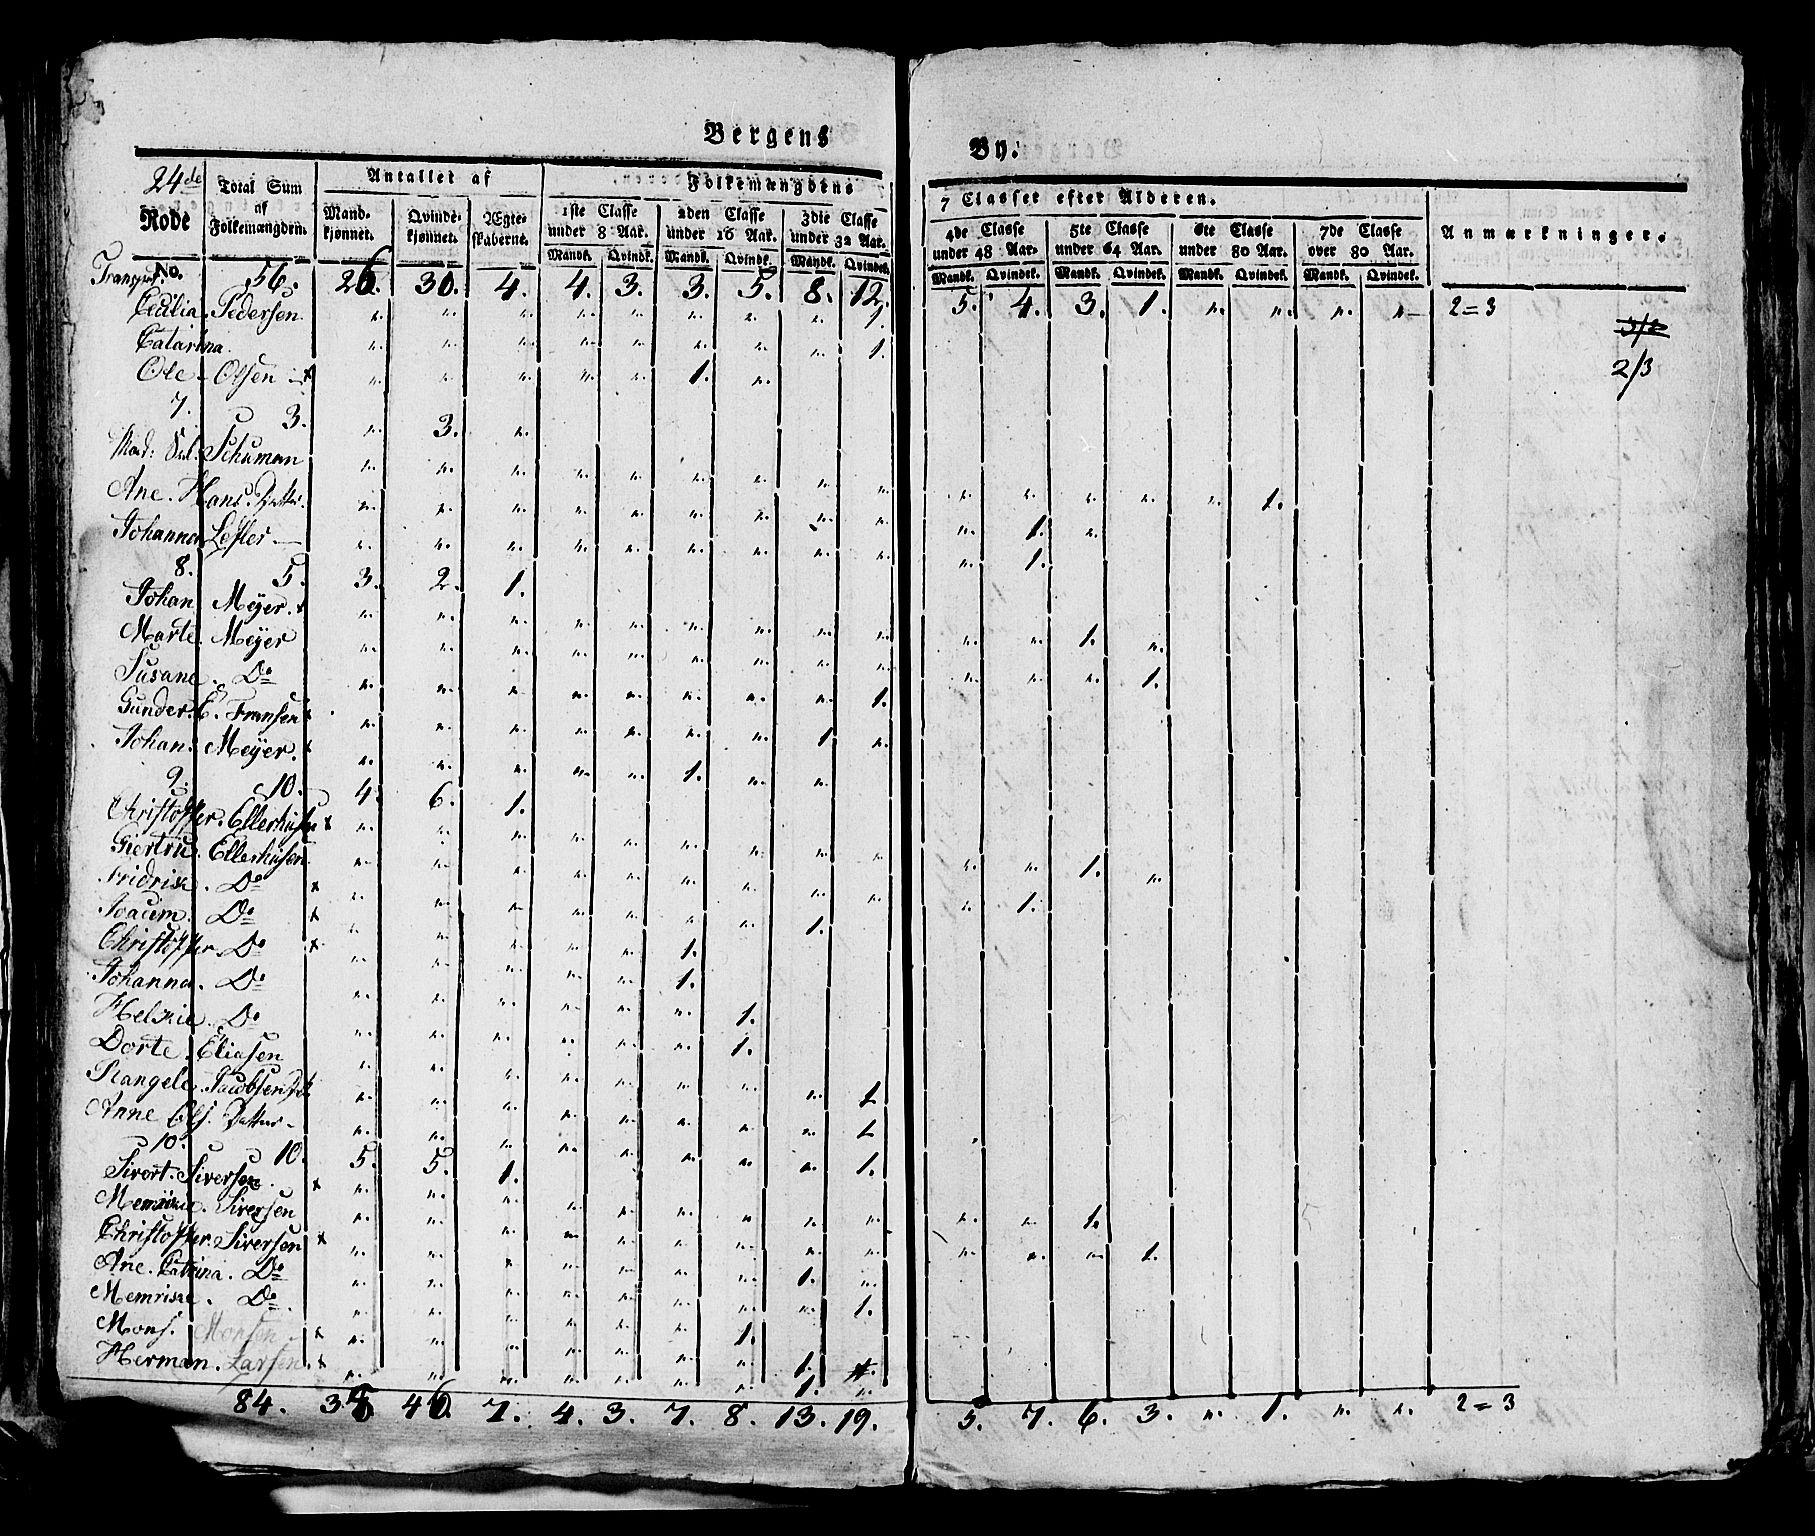 Bergens By.
24de Rode No.
Total Sum af Folkemængden.
Antallet af
Mandkjønnet. Qvindekjønnet. Ægteskaberne.
Folkemængdens 7 Classer efter Alderen.
1ste Classe under 8 Aar. 2den Classe under 16 Aar. 3die Classe under 32 Aar. 4de Classe under 48 Aar. 5te Classe under 64 Aar. 6te Classe under 80 Aar. 7de Classe over 80 Aar.
Mandk. Qvindk. Mandk. Qvindk. Mandk. Qvindek. Mandk. Qvindek. Mandk. Qvindek. Mandk. Qvindek. Mandk. Qvindek.
Anmærkninger.
Transport. 56. 26. 30. 4. 4. 3. 3. 5. 8. 12. 5. 4. 3. 1. " " " " 2=3
Cecilia Pedersen " " " " " " " " 1. 3/2
Catarina " " " " " " " " 1. 2/3
Ole Olsen x " " " " " 1. "
7. 3. " 3. "
Mad: Sal. Schuman " " " " " " " " " " " " " " 1.
Ane Hans Datter. " " " " " " " " " " 1. "
Johanna Lefler " " " " " " " " " " 1.
8. 5. 3. 2. 1.
Johan Meyer. x " " " " " " " " " " " 1. "
Marte Meyer " " " " " " " " " " " " 1.
Susane Do " " " " " " " " 1.
Gunder E. Fransen x " " " " " " " 1 "
Johan Meyer. x " " " " " 1. " "
9. 10. 4. 6. 1.
Christoffer. Ellerhusen x " " " " " " " " " " " 1. "
Giertru. Ellerhusen " " " " " " " " " " 1.
Fridrisk. Do x " " " " " " " 1.
Joacim. Do x " " " " " 1.
Christoffer Do x " " " " " 1.
Johanna. Do " " " " " " 1.
Helskie. Do " " " " " " 1.
Dorte. Eliasen " " " " " " " " 1
Rangele. Jacobsen " " " " " " " " 1
Anne Ols. Datter " " " " " " " " 1.
10. 10. 5. 5. 1.
Sivert. Siversen. x " " " " " " " " " " " 1.
Siversen " " " " " " " " " " " " 1.
Christoffer. Siversen x " " " " " " " 1. "
Ane. Catrina. Do " " " " " " " " 1.
Memriske. Do " " " " " " 1.
Mons. Monsen x " " " " " " " 1.
Herman. Larsen. x " " " " " " " 1. "
84. 38 46. 7. 4. 3. 7. 8. 13. 19. 5. 7. 6. 3. " 1. " " 2=3